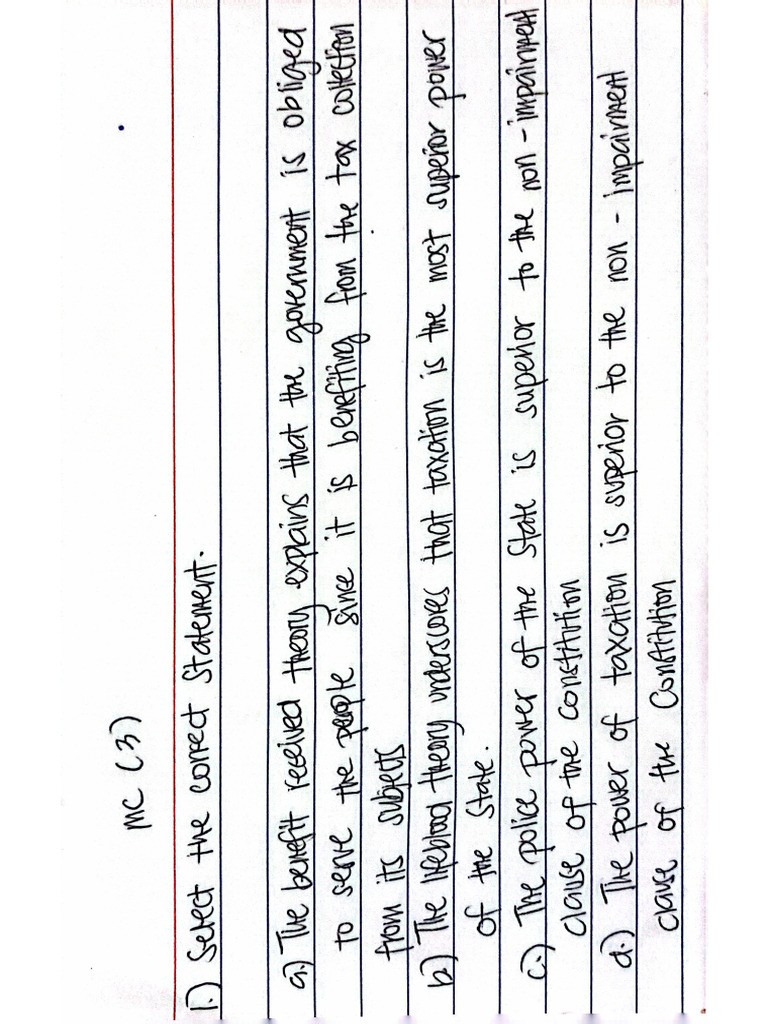 MC (3)
1.) Select the correct Statement.
a.) The benefit received theory explains that the government is obliged
to serve the people since it is benefiting from the tax collection
from its subjects
b) The lifeblood theory underscores that taxation is the most superior power
of the State.
c.) The police power of the State is superior to the non-impairment
clause of the constitution
d.) The power of taxation is superior to the non-impairment
clause of the Constitution